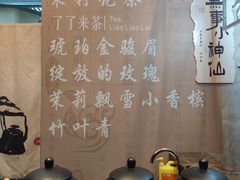 茉莉花茶
了了来茶 Tea
Liao Liao Lai
琥珀金骏眉
绽放的玫瑰
茉莉飘雪小香槟
竹叶青
无事小神仙